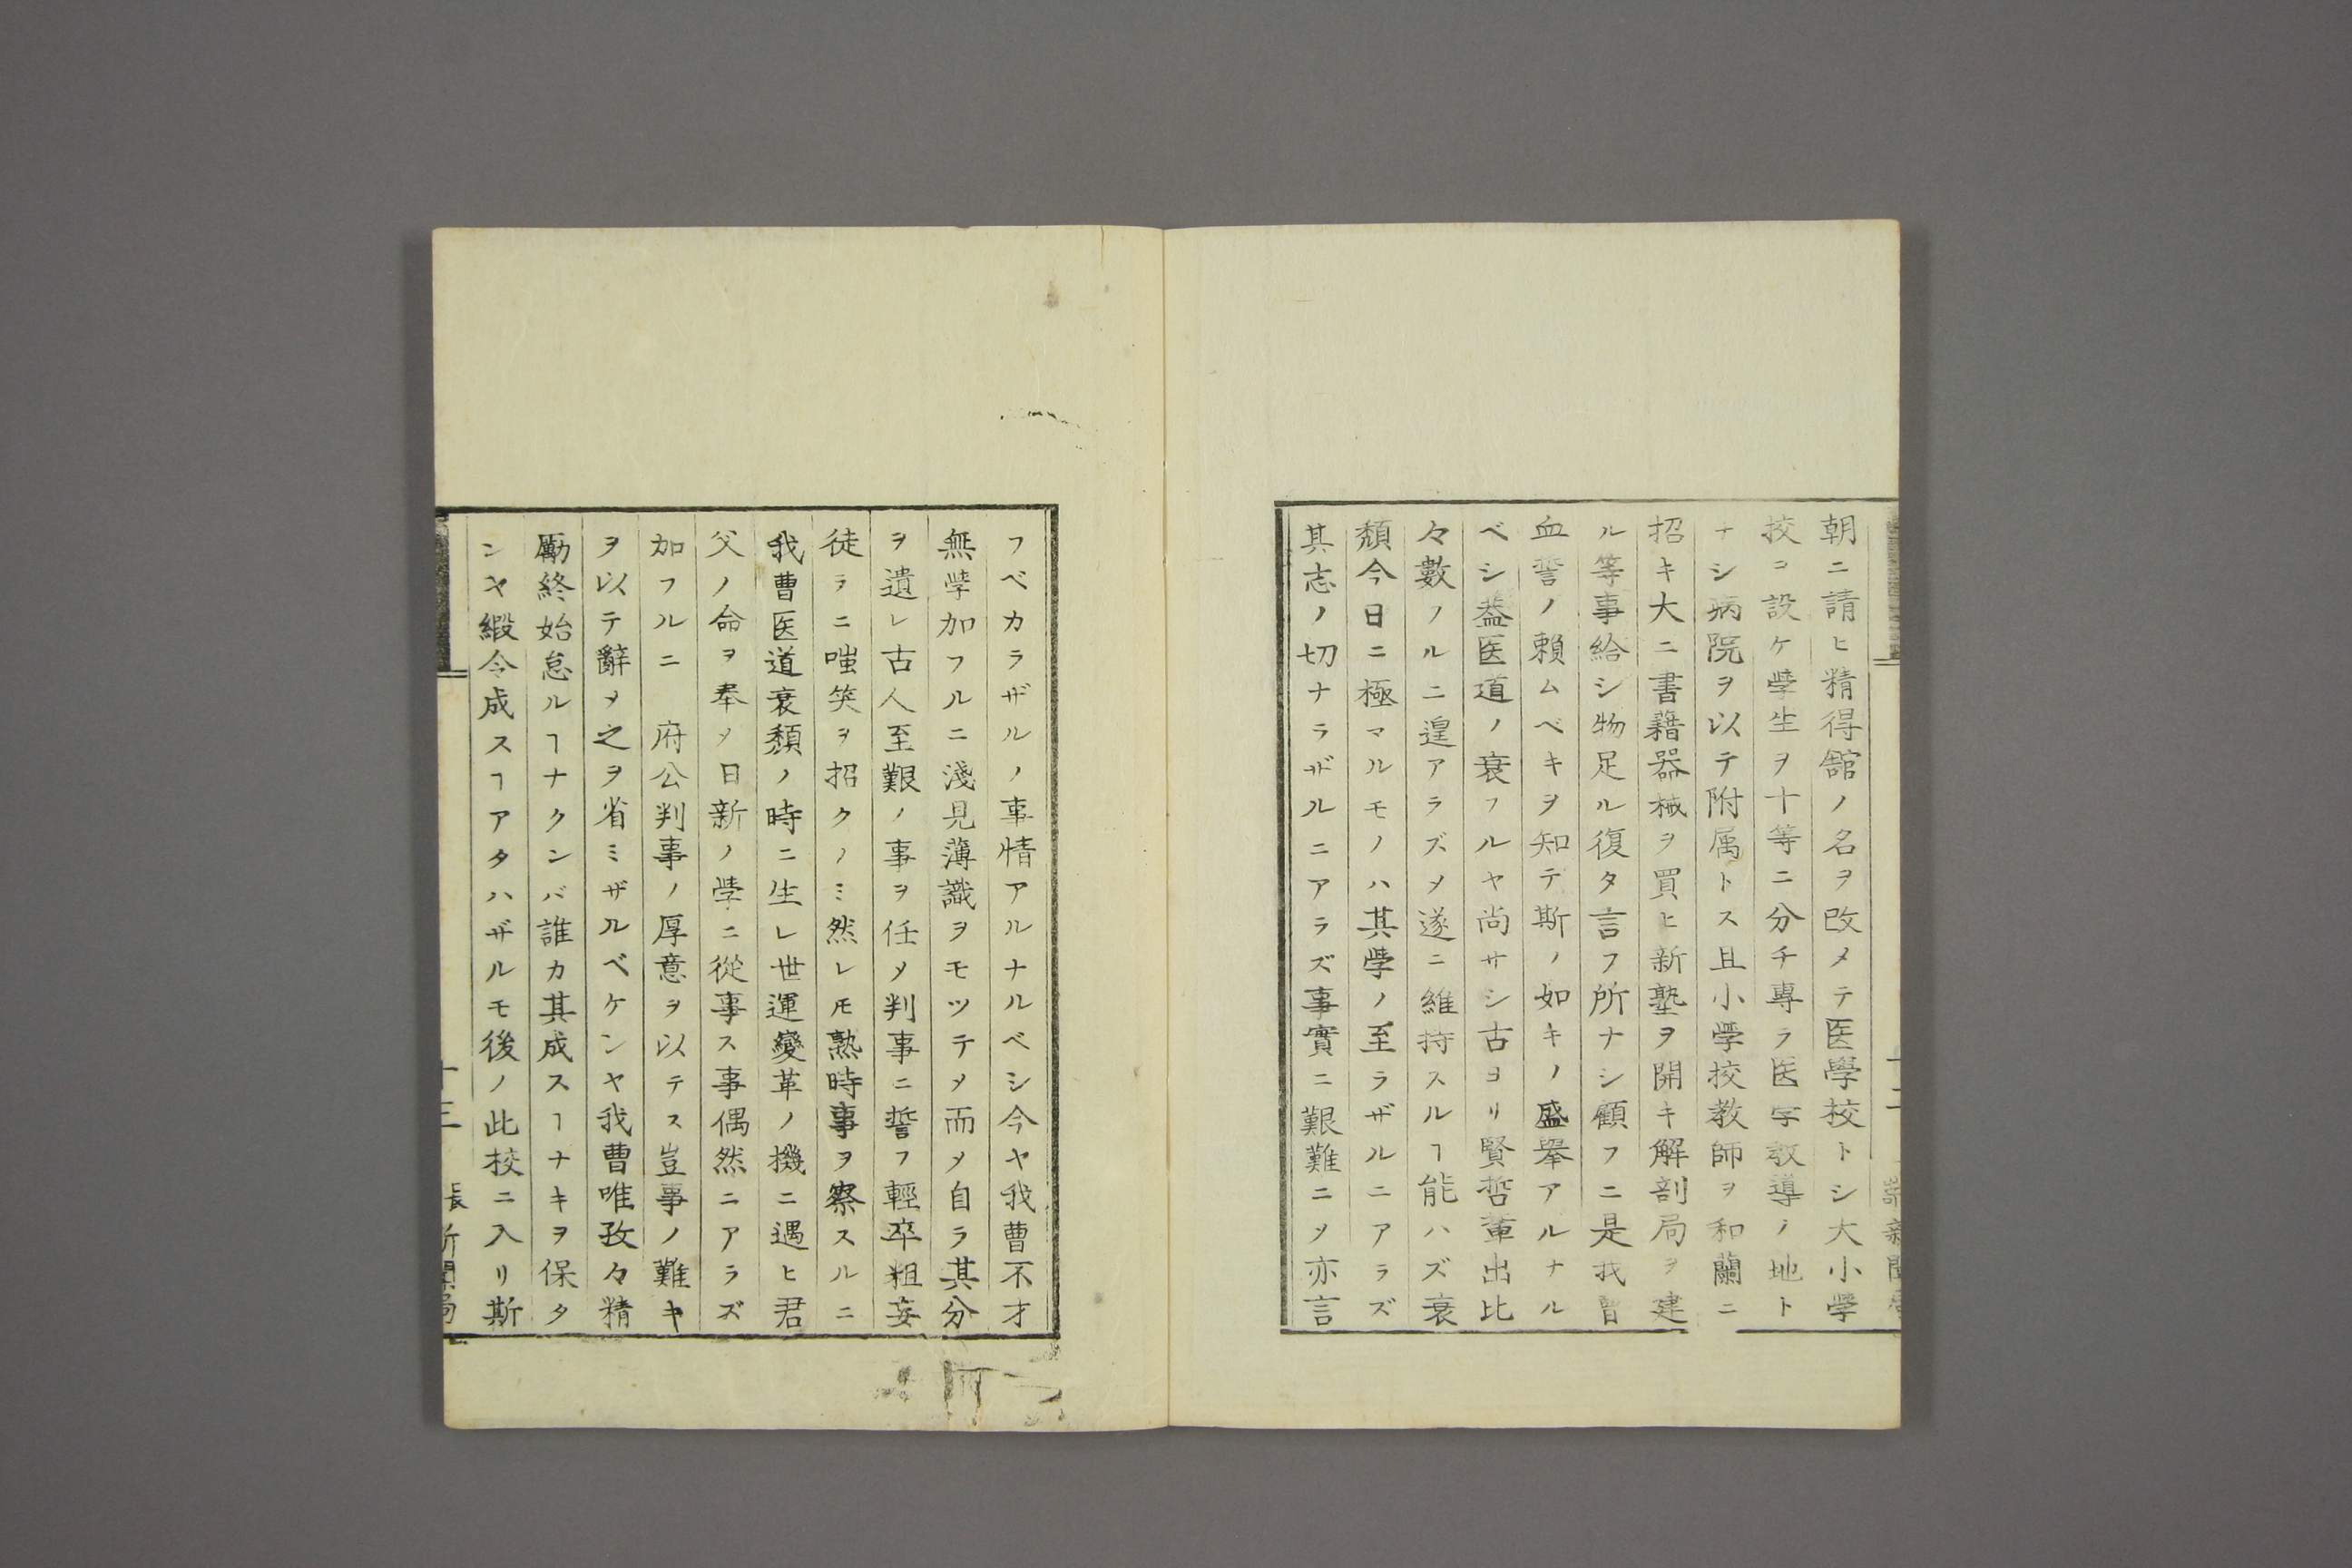 朝ニ請ヒ精得舘ノ名ヲ改メテ医學校トシ大小學
挍コ設ケ學生ヲ十等ニ分チ專ラ医学敎導ノ地ト
ナシ病院ヲ以テ附属トス且小学挍教師ヲ和蘭ニ
招キ大ニ書籍器械ヲ買ヒ新塾ヲ開キ解剖局ヲ建
ル等事給シ物足ル復タ言フ所ナシ顧フニ是我曹
血誓ノ頼ムベキヲ知テ斯ノ如キノ盛舉アルナル
ベシ葢医道ノ衰フルヤ尚サシ古ヨリ賢哲輩出比
々數フルニ遑アラズメ遂ニ維持スルヿ能ハズ衰
頽今日ニ極マルモノハ其學ノ至ラザルニアラズ
其志ノ切ナラザルニアラズ事實ニ艱難ニメ亦言
フベカラザルノ事情アルナルベシ今ヤ我曹不才
無學加フルニ淺見薄識ヲモツテメ而メ自ラ其分
ヲ遺レ古人至艱ノ事ヲ任メ判事ニ誓フ輕卒粗妄
徒ラニ嗤笑ヲ招クノミ然レ𪜈熟時事ヲ察スルニ
我曹医道衰頽ノ時ニ生レ世運變革ノ機ニ遇ヒ君
父ノ命ヲ奉メ日新ノ學ニ從事ス事偶然ニアラズ
加フルニ　府公判事ノ厚意ヲ以テス豈事ノ難キ
ヲ以テ辭メ之ヲ省ミザルベケンヤ我曹唯孜々精
勵終始怠ルヿナクンバ誰カ其成スヿナキヲ保タ
ンヤ縦令成スヿアタハザルモ後ノ此校ニ入リ斯
十三
長
新聞局